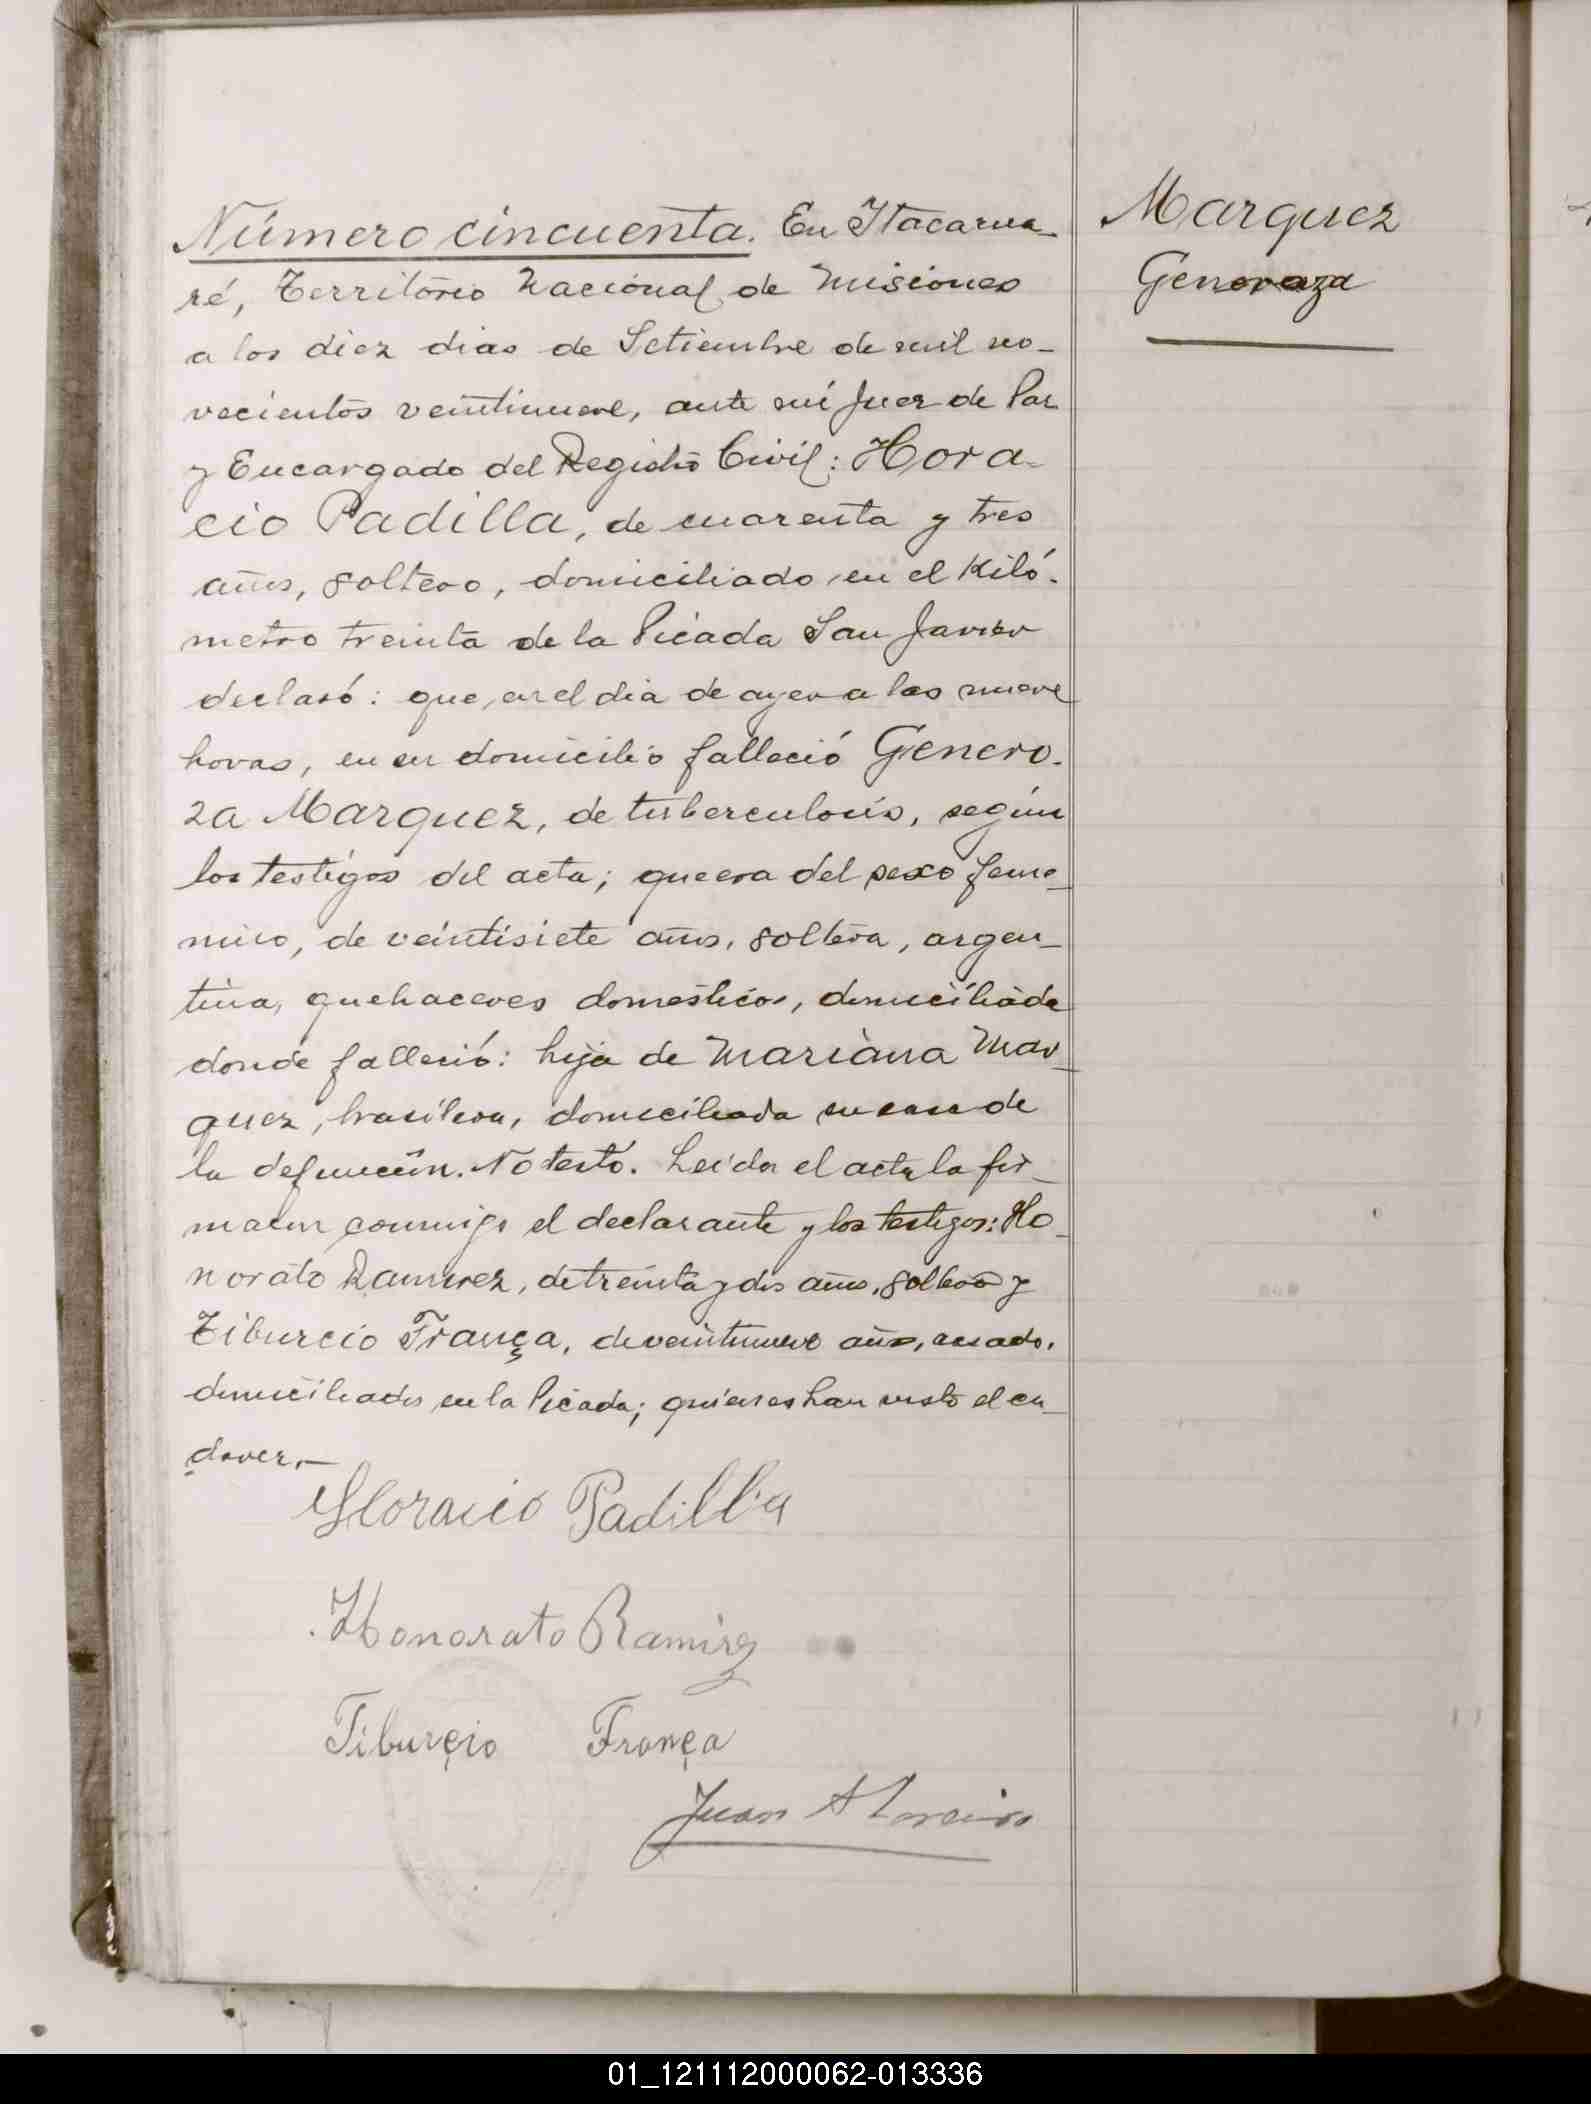 Número cincuenta. En Itacarua-
ré, Territorio Nacional de Misiones
a los diez dias de Setiembre de mil no-
vecientos veintinueve, ante mí Juez de Paz
y Encargado del Registro Civil: Hora-
cio Padilla, de cuarenta y tres
años, soltero, domiciliado en el Kiló-
metro treinta de la Picada San Javier
declaró: que, en el dia de ayer a las nueve
horas, en su domicilio falleció Genero-
za Marquez, de tuberculosis, según
los testigos del acta; que era del sexo feme-
nino, de veintisiete años, soltera, argen-
tina, quehaceres domesticos, domiciliada
donde falleció: hija de Mariana Mar-
quez, brasilera, domiciliada en casa de
la defunción. No testó. Leida el acta la fir-
maron conmigo el declarante y los testigos: Ho-
norato Ramirez, de treinta y dos años, soltero y
Tiburcio França, de veintinueve años, casado,
domiciliados en la Picada; quienes han visto el ca-
daver.-
Horacio Padilla
Honorato Ramirez
Tiburçio França
Juan
Marquez
Generoza
01_121112000062-013336